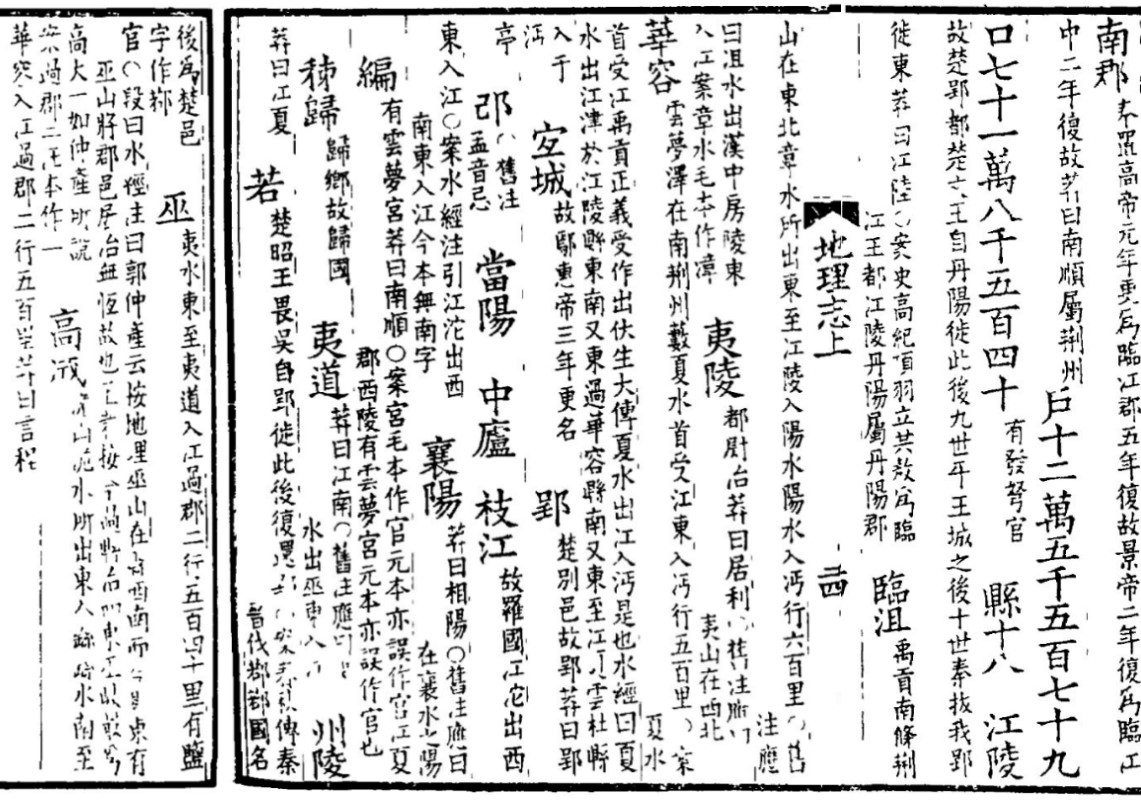 南郡 秦置高帝元年更爲臨江郡五年復故景帝二年復爲臨江
中二年復故莽曰南順屬荊州 戶十二萬五千五百七十九
口七十一萬八千五百四十 有發弩官 縣十八 江陵
故楚郢都楚文王自丹陽徙此後九世平王城之後十世秦拔我郢
徙東莽曰江陵○案史高紀項羽立共敖爲臨
江王都江陵丹陽屬丹陽郡 臨沮 禹貢南條荊
地理志上
山在東北章水所出東至江陵入陽水陽水入沔行六百里○舊
注應
曰沮水出漢中房陵東
入江案章水毛本作漳 夷陵 都尉治莽曰居利○舊注應
夷山在西北
華容 雲夢澤在南荊州藪夏水首受江東入沔行五百里○案
夏水
首受江禹貢正義受作出伏生大傳夏水出江入沔是也水經曰夏
水出江津於江陵縣東南又東過華容縣南又東至江夏雲杜縣
入于
沔 宜城 故鄢惠帝三年更名 郢 楚別邑故郢莽曰郢
亭 邔 ○舊注
孟音忌 當陽 中廬 枝江 故羅國江沱出西
東入江○案水經注引江沱出西
南東入江今本無南字 襄陽 莽曰相陽○舊注應曰
在襄水之陽
編 有雲夢宮莽曰南順○案宮毛本作官元本亦誤作官江夏
郡西陵有雲夢宮元本亦誤作官也
秭歸 歸鄉故歸國 夷道 莽曰江南○舊注應
水出巫東入 州陵
莽曰江夏 若 楚昭王畏吳自郢徙此後復還 傳秦
晉伐鄀鄀國名
後爲楚邑
字作鄀 巫 夷水東至夷道入江過郡二行五百四十里有鹽
官○段曰水經注曰郭仲產云按地理巫山在縣西南而今縣東有
巫山將郡邑居治無恆故也
高大一如仲產所說
過郡二毛本作一 高成 洈山洈水所出東入繇繇水南至
華容入江過郡二行五百里莽曰言程